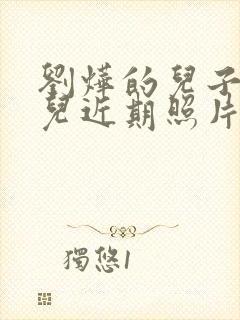 劉燁的兒子
兒近期照片
獨悠1